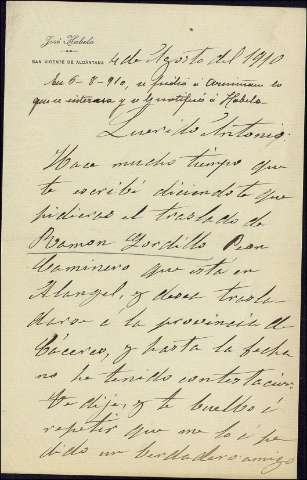 José Habela
SAN VICENTE DE ALCÁNTARA
4 de Agosto del 1910
En 6-8-910, se pidió á
que se interesa y se le notificó á Habela.
Querido Antonio:
Hace mucho tiempo que
te escribí diciendote que
pidieras el traslado de
Ramon Gordillo Peon
Caminero que está en
Alangel, y desea trasla
darse á la provincia de
Cáceres, y hasta la fecha
no he tenido contestacion.
Te dije, y te buelbo á
repetir que me lo á pe
dido un berdadero amigo